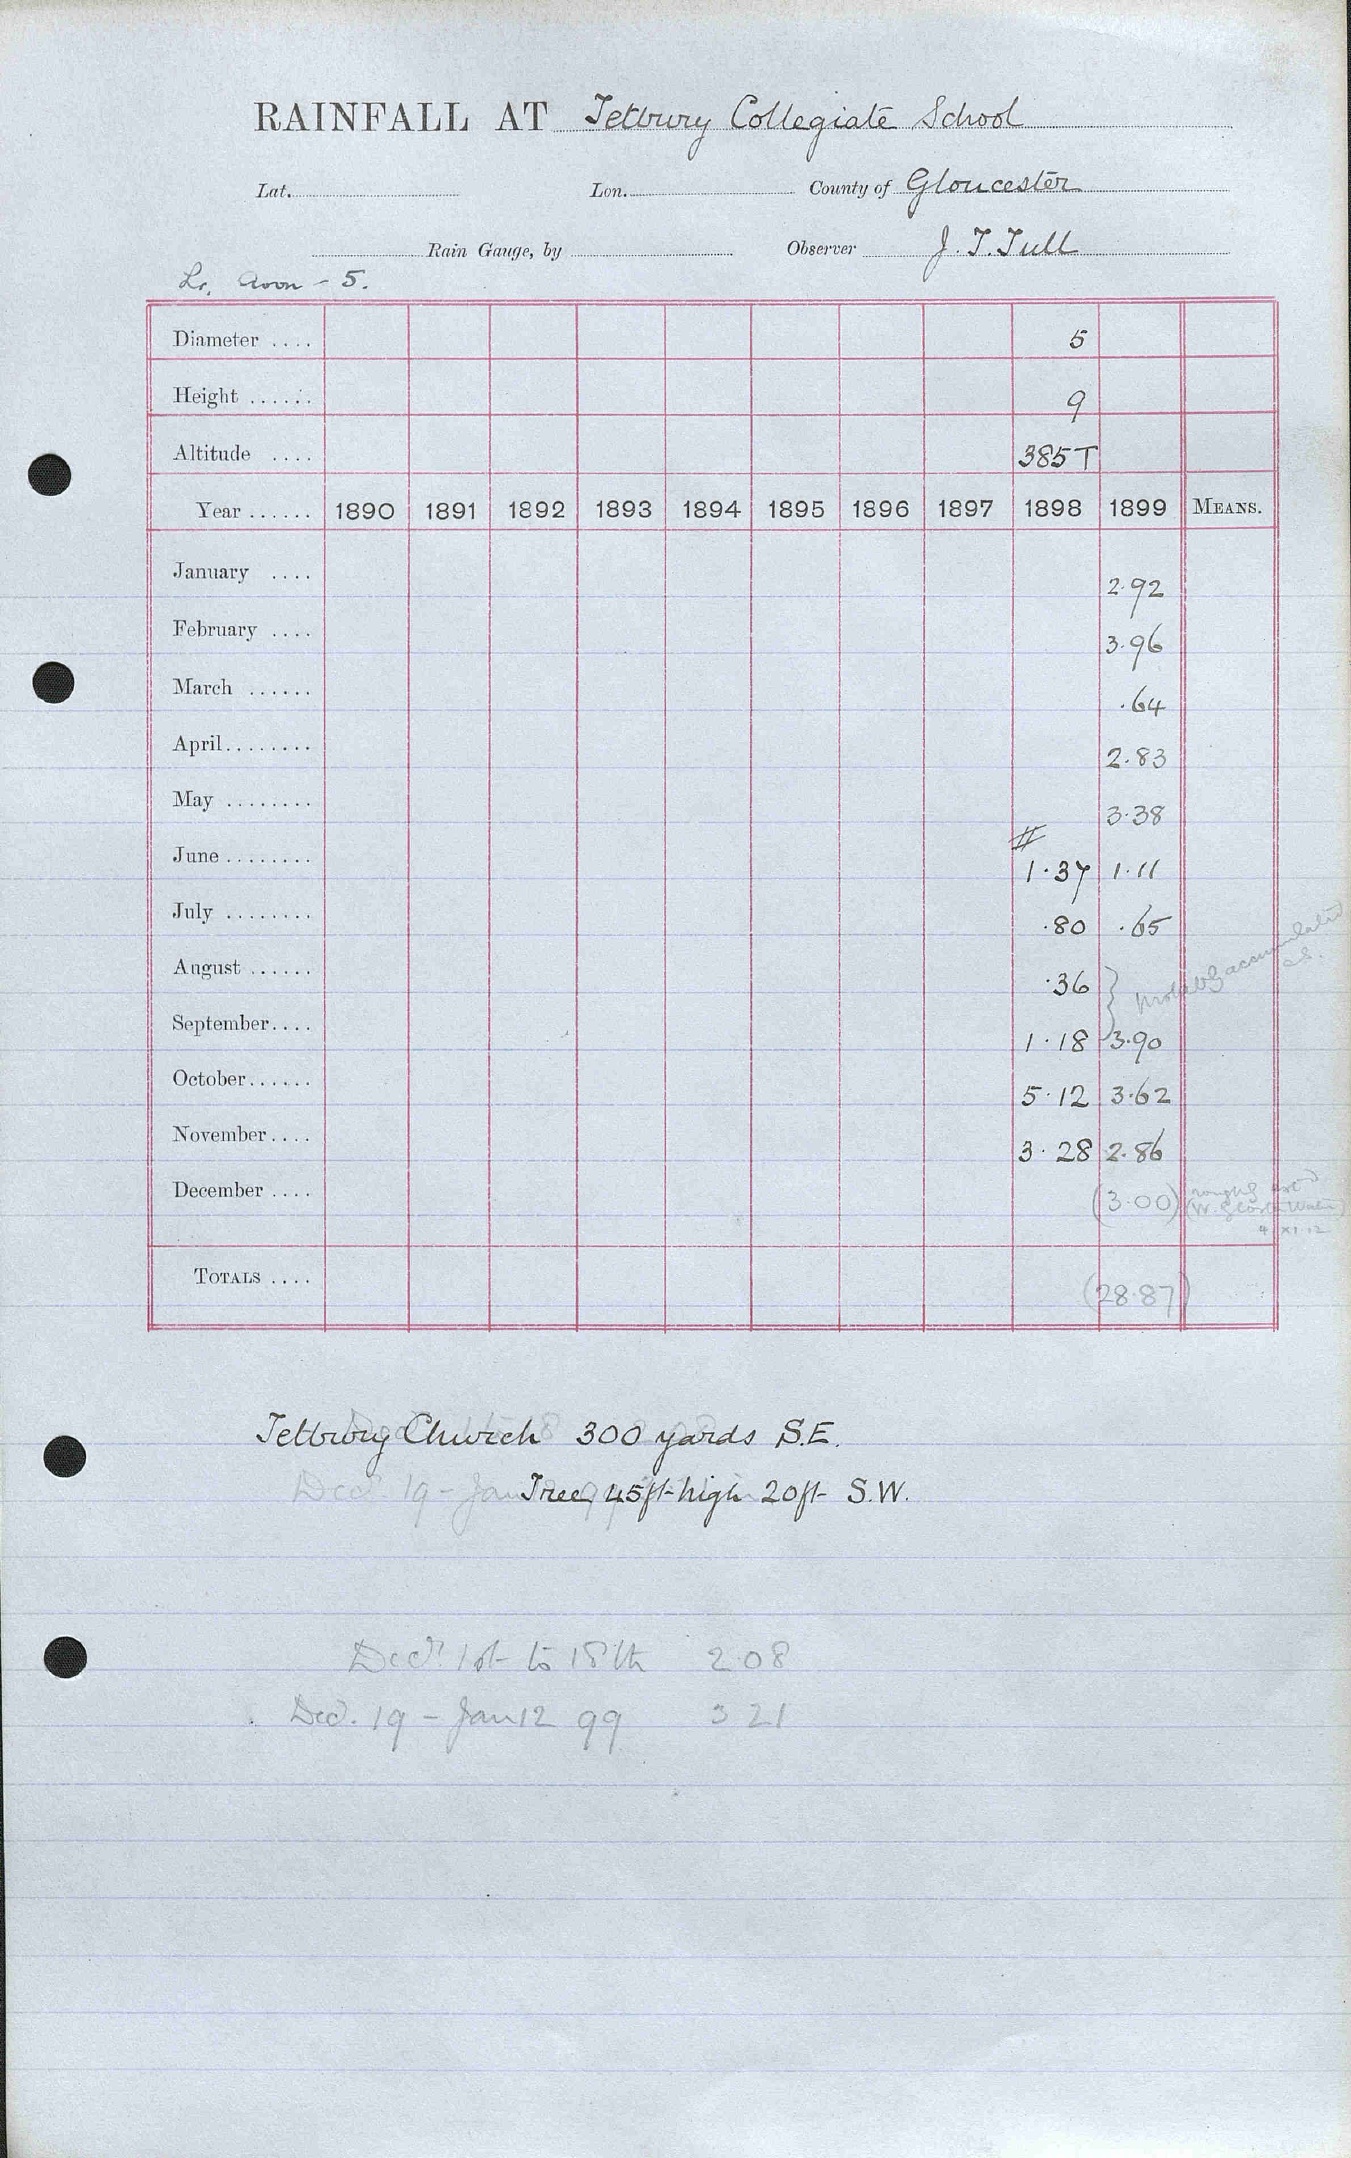 RAINFALL AT Tetbury Collegiate School
Lat. Lon. County of Gloucester
Rain Gauge, by Observer J. T. Tull
Lr. Avon - 5.
Diameter .... 5
Height ...... 9
Altitude .... 385 T
Year ...... 1890 1891 1892 1893 1894 1895 1896 1897 1898 1899 MEANS.
January .... 2.92
February .... 3.96
March ...... .64
April ........ 2.83
May ........ 3.38
June ........ 1.37 1.11
July ........ .80 .65
August ...... .36 } probably accumulated
September .... 1.18 3.90
October ...... 5.12 3.62
November .... 3.28 2.86
December .... (3.00) (roughly
4 XI 12
TOTALS .... (28.87)
Tetbury Church 300 yards S.E.
Tree 45ft high 20ft S.W.
Decr. 1st to 18th 2.08
Dec. 19 - Jan 12 99 3 21